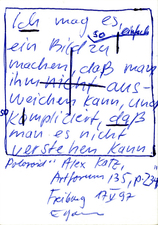 Ich mag es,
so einfach
ein Bild zu
machen, daß man
ihm nicht aus-
weichen kann, und
so kompliziert, daß
man es nicht
verstehen kann
Polaroid" Alex Katz,
Artforum 135, p. 234
Freiburg 17. V 97